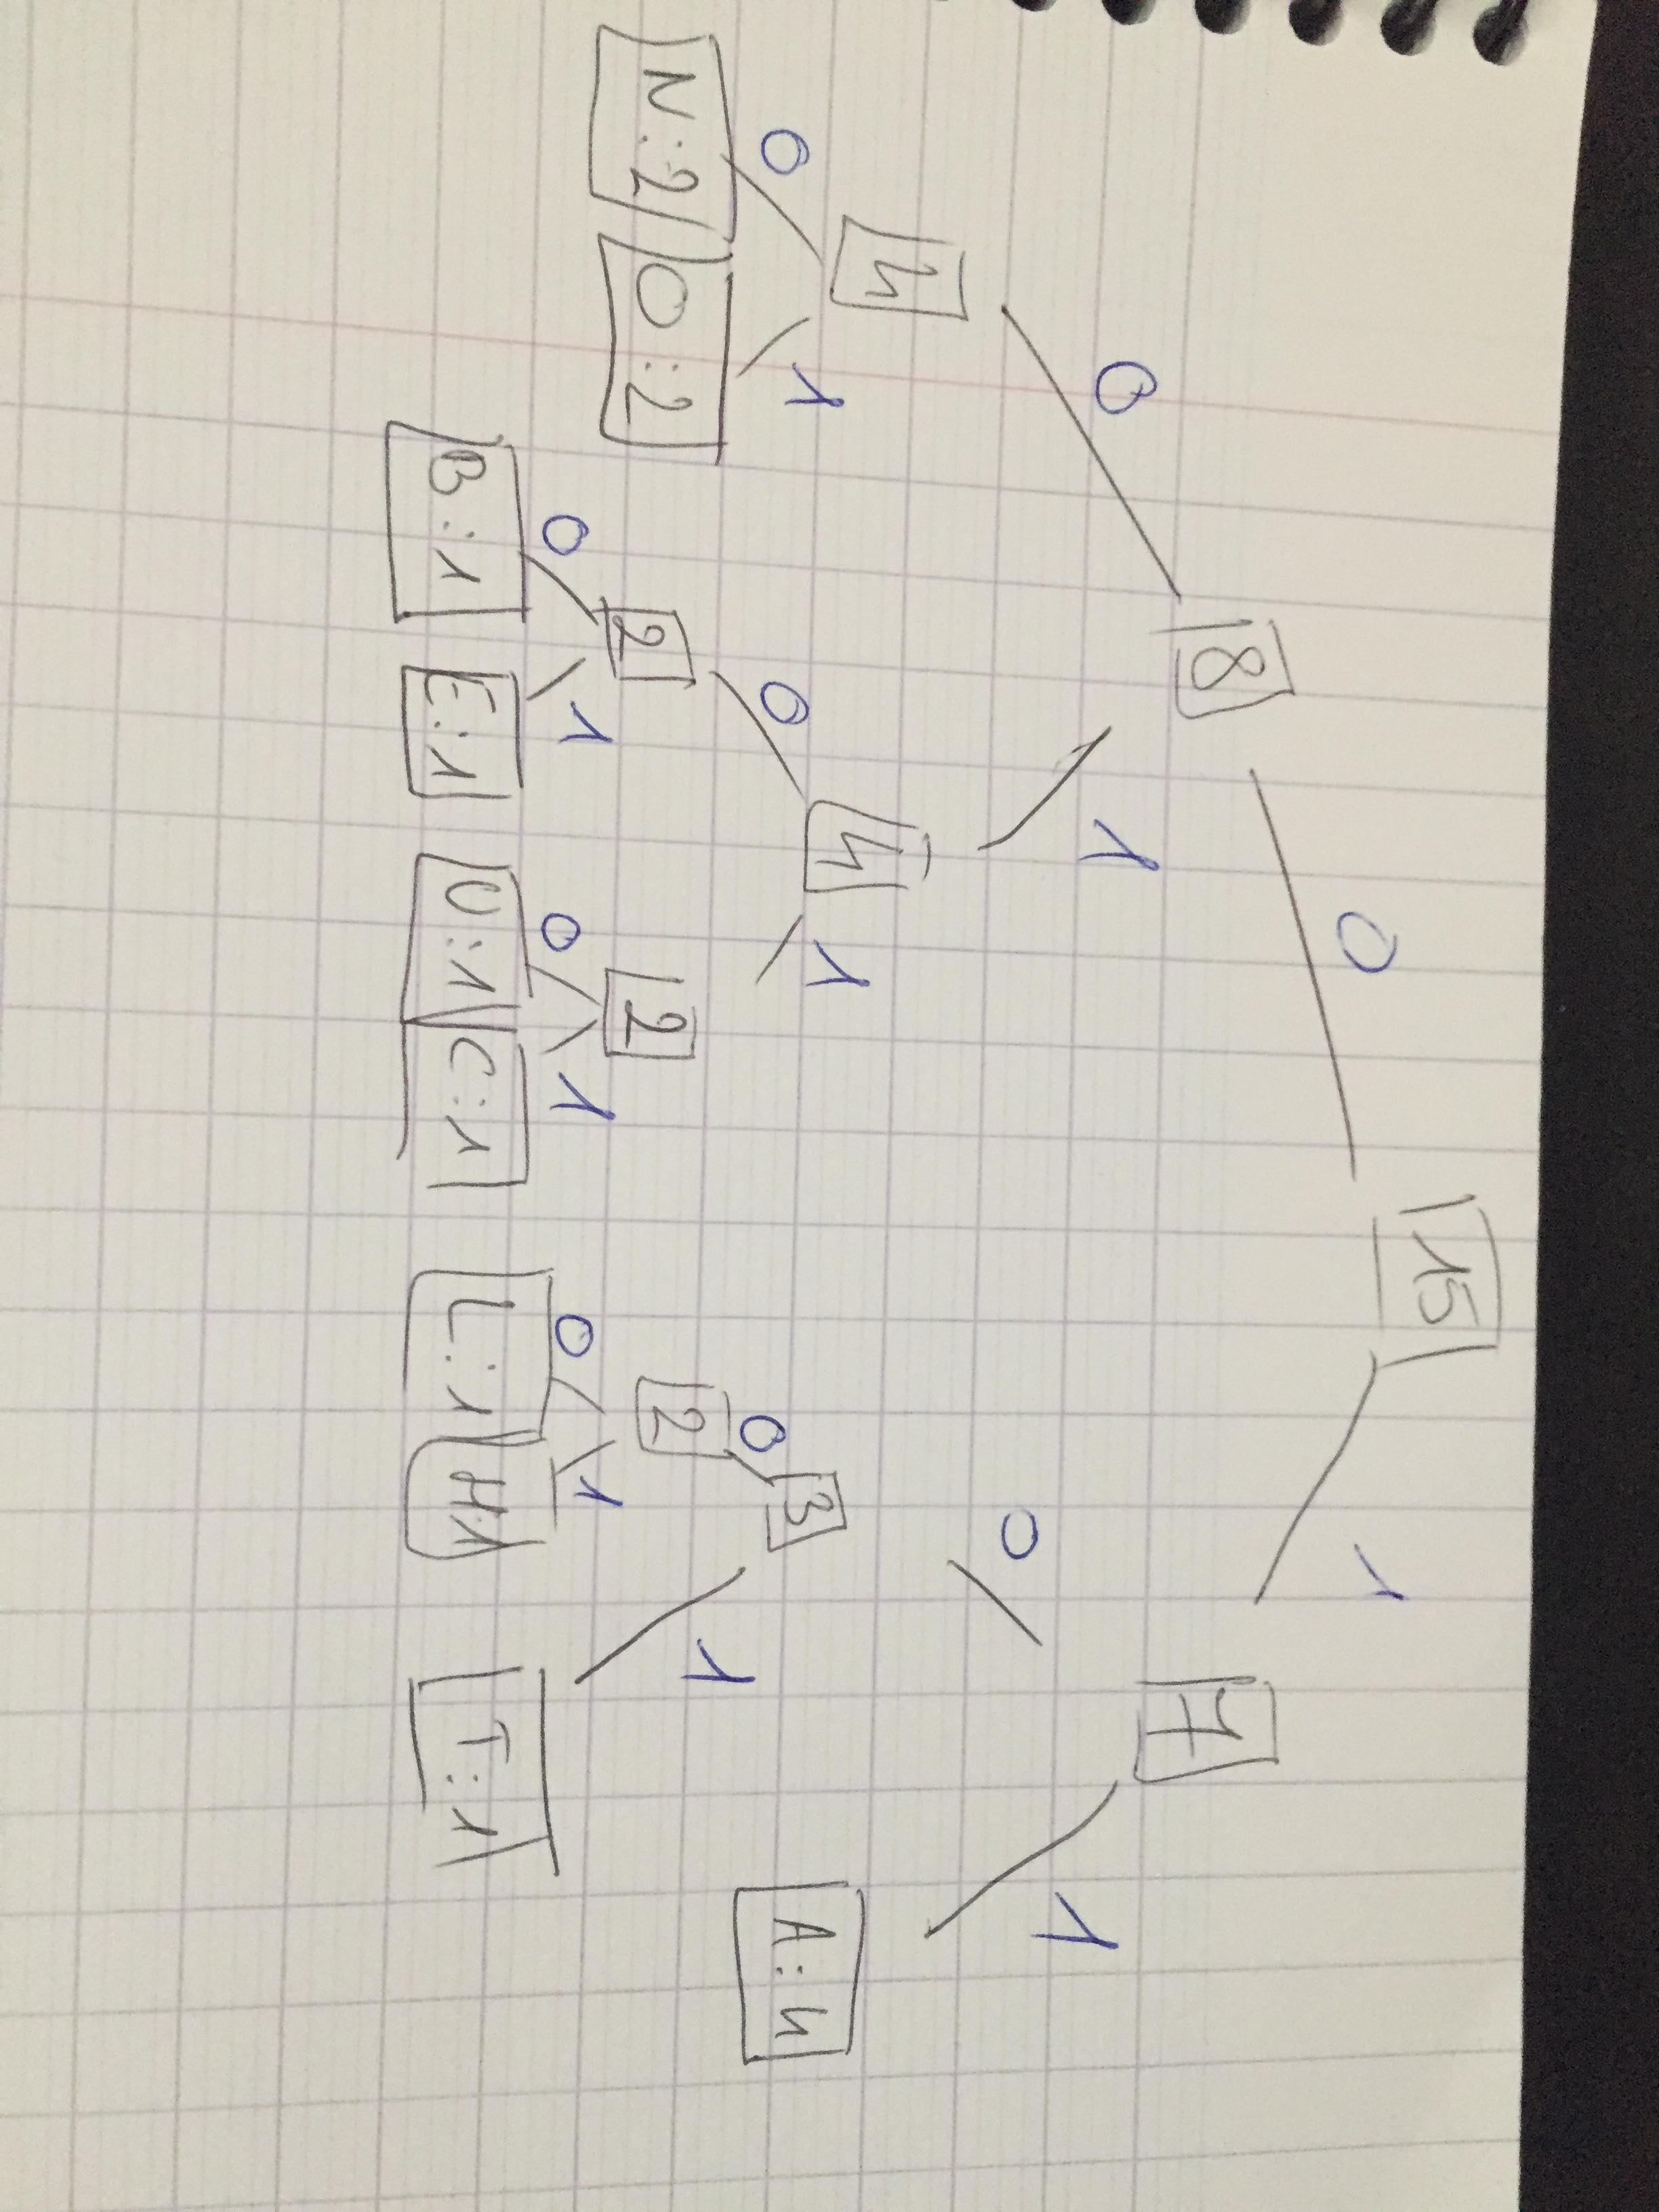 15
0 1
8 7
0 1 0 1
4 4 3 A:4
0 1 0 1 0 1
N:2 O:2 2 2 2
0 1 0 1 0 1
B:1 E:1 U:1 C:1 L:1 H:1 T:1